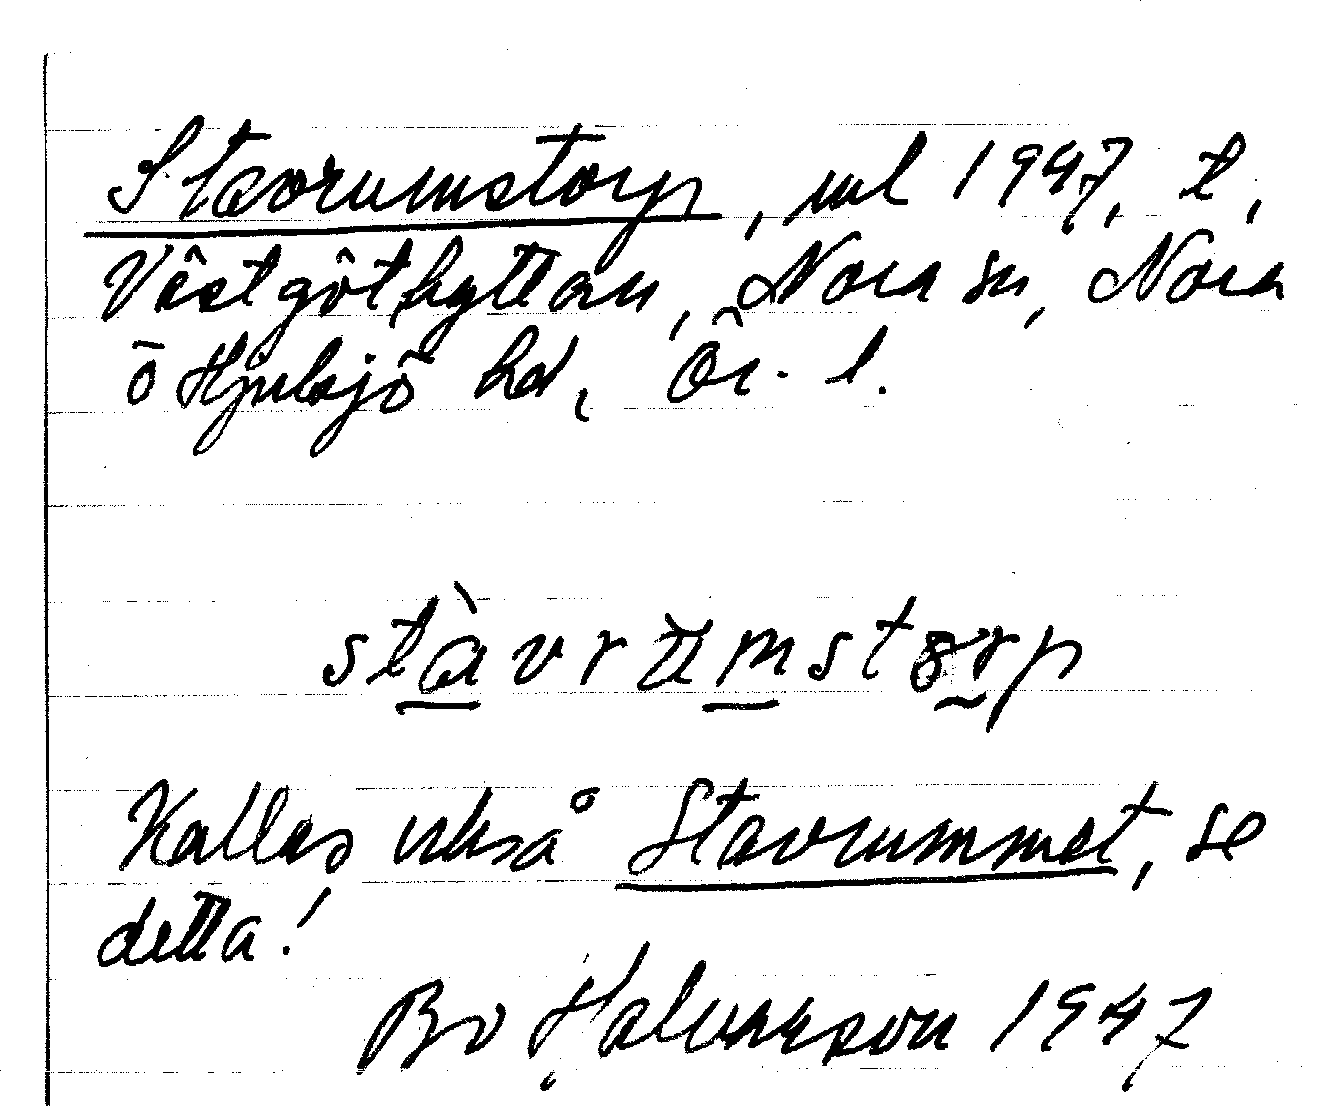 Stavrumstorp, uul 1947, t,
Västgöthyttan, Nora sn, Nora
o Hjulsjö hd, Ör. l.
stàvrumstorp
Kallas också Stavrummet, se
detta!
Bo Halvarsson 1947